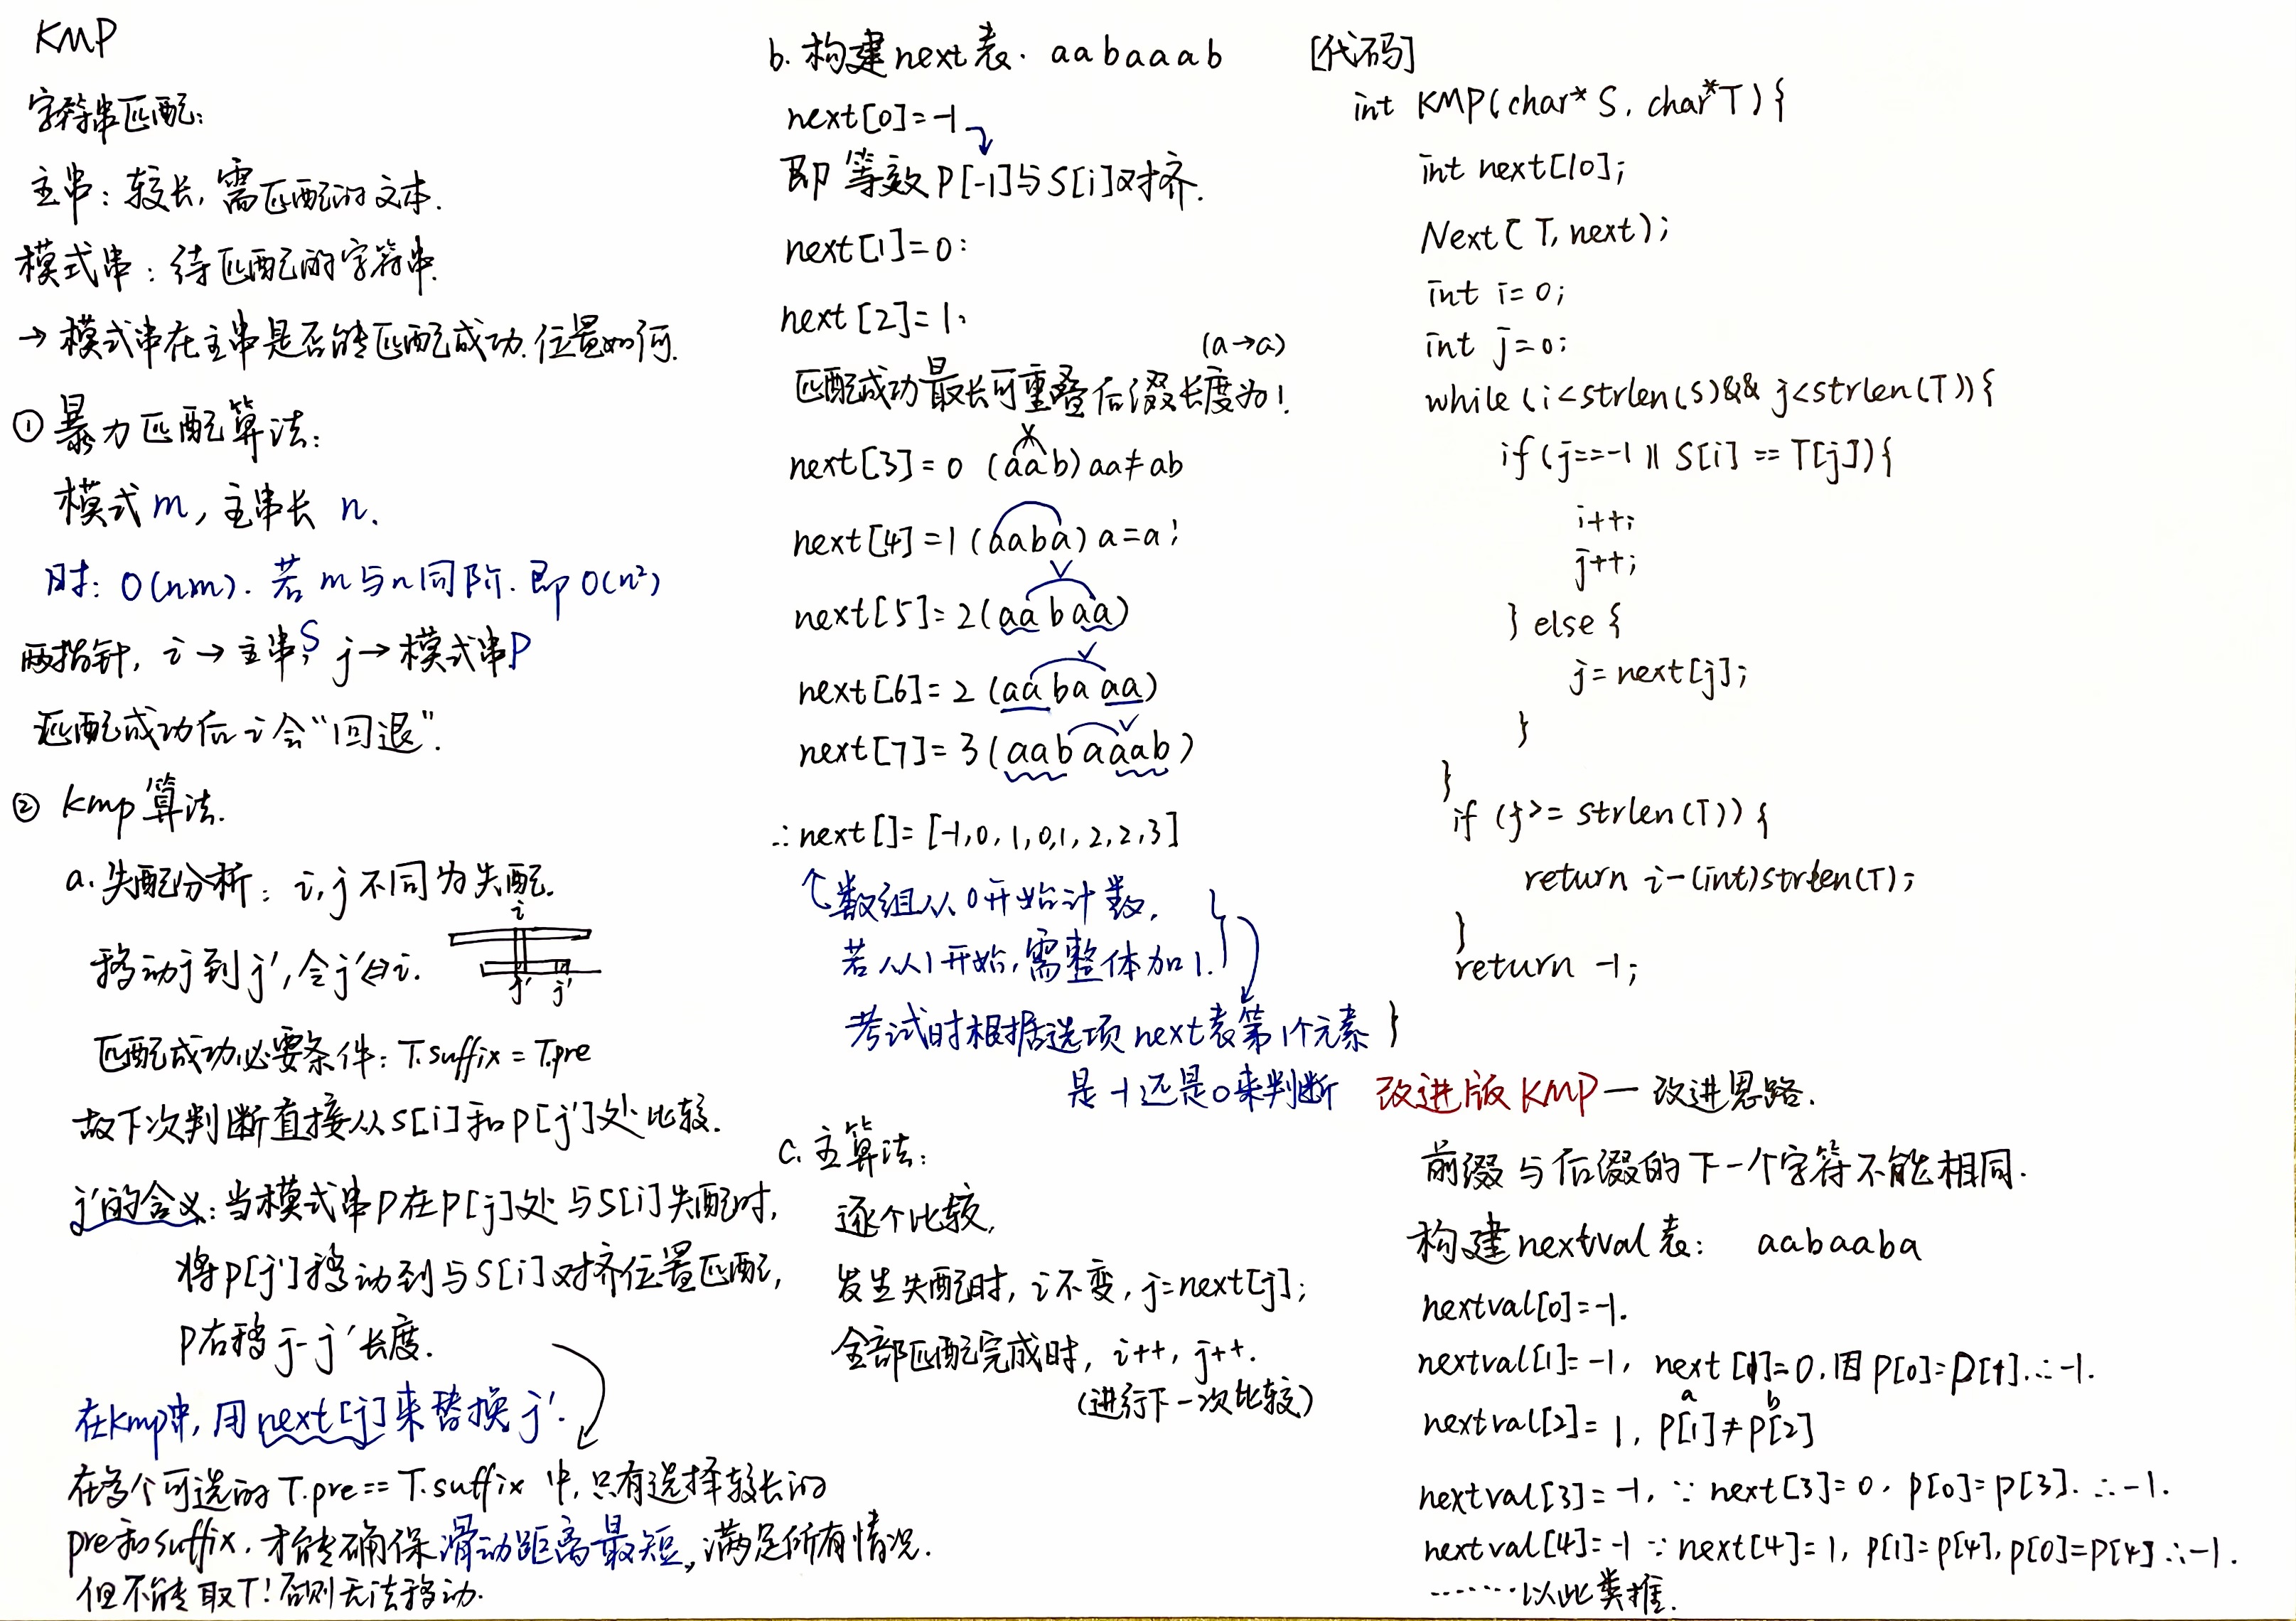 KMP
字符串匹配:
主串: 较长, 需匹配的文本.
模式串: 待匹配的字符串.
→ 模式串在主串是否能匹配成功. 位置如何.
① 暴力匹配算法:
模式 m, 主串长 n.
时: O(nm). 若 m 与 n 同阶. 即 O(n²)
两指针, i → 主串S, j → 模式串P
匹配成功后 i 会"回退".
② kmp 算法.
a. 失配分析: i, j 不同为失配.
移动 j 到 j', 令 j' ⇔ i.
i
j' j'
匹配成功必要条件: T.suffix = T.pre
故下次判断直接从 S[i] 和 P[j'] 处比较.
j'的含义: 当模式串 P 在 P[j] 处与 S[i] 失配时,
将 P[j'] 移动到与 S[i] 对齐位置匹配,
P 右移 j-j' 长度.
在kmp中, 用 next[j] 来替换 j'.
在多个可选的 T.pre == T.suffix 中, 只有选择较长的
pre和suffix, 才能确保滑动距离最短, 满足所有情况.
但不能取T! 否则无法移动.
b. 构建 next 表. aabaaab
next[0]=-1
即 等效 P[-1] 与 S[i] 对齐.
next[1]=0:
next[2]=1:
(a→a)
匹配成功最长可重叠后缀长度为1.
next[3]=0 (aab) aa≠ab
next[4]=1 (aaba) a=a;
next[5]=2 (aabaa)
next[6]=2 (aabaaa)
next[7]=3 (aabaaab)
∴ next[]=[-1,0,1,0,1,2,2,3]
↑数组从0开始计数,
若从1开始, 需整体加1.
考试时根据选项 next 表第1个元素
是-1还是0来判断
c. 主算法:
逐个比较,
发生失配时, i不变, j=next[j];
全部匹配完成时, i++, j++.
(进行下一次比较)
[代码]
int KMP(char* S, char*T){
int next[10];
Next(T,next);
int i=0;
int j=0;
while(i<strlen(S)&& j<strlen(T)){
if(j==-1 || S[i]==T[j]){
i++;
j++;
} else {
j=next[j];
}
}
if (j>= strlen(T)) {
return i-(int)strlen(T);
}
return -1;
}
改进版 KMP — 改进思路.
前缀与后缀的下一个字符不能相同.
构建 nextval 表: aabaaba
nextval[0]=-1.
nextval[1]=-1, next[1]=0, 因 P[0]=P[1]. ∴-1.
a b
nextval[2]=1, P[1]≠P[2]
nextval[3]=-1, ∵ next[3]=0, P[0]=P[3]. ∴-1.
nextval[4]=-1 ∵ next[4]=1, P[1]=P[4], P[0]=P[4] ∴-1.
……以此类推.